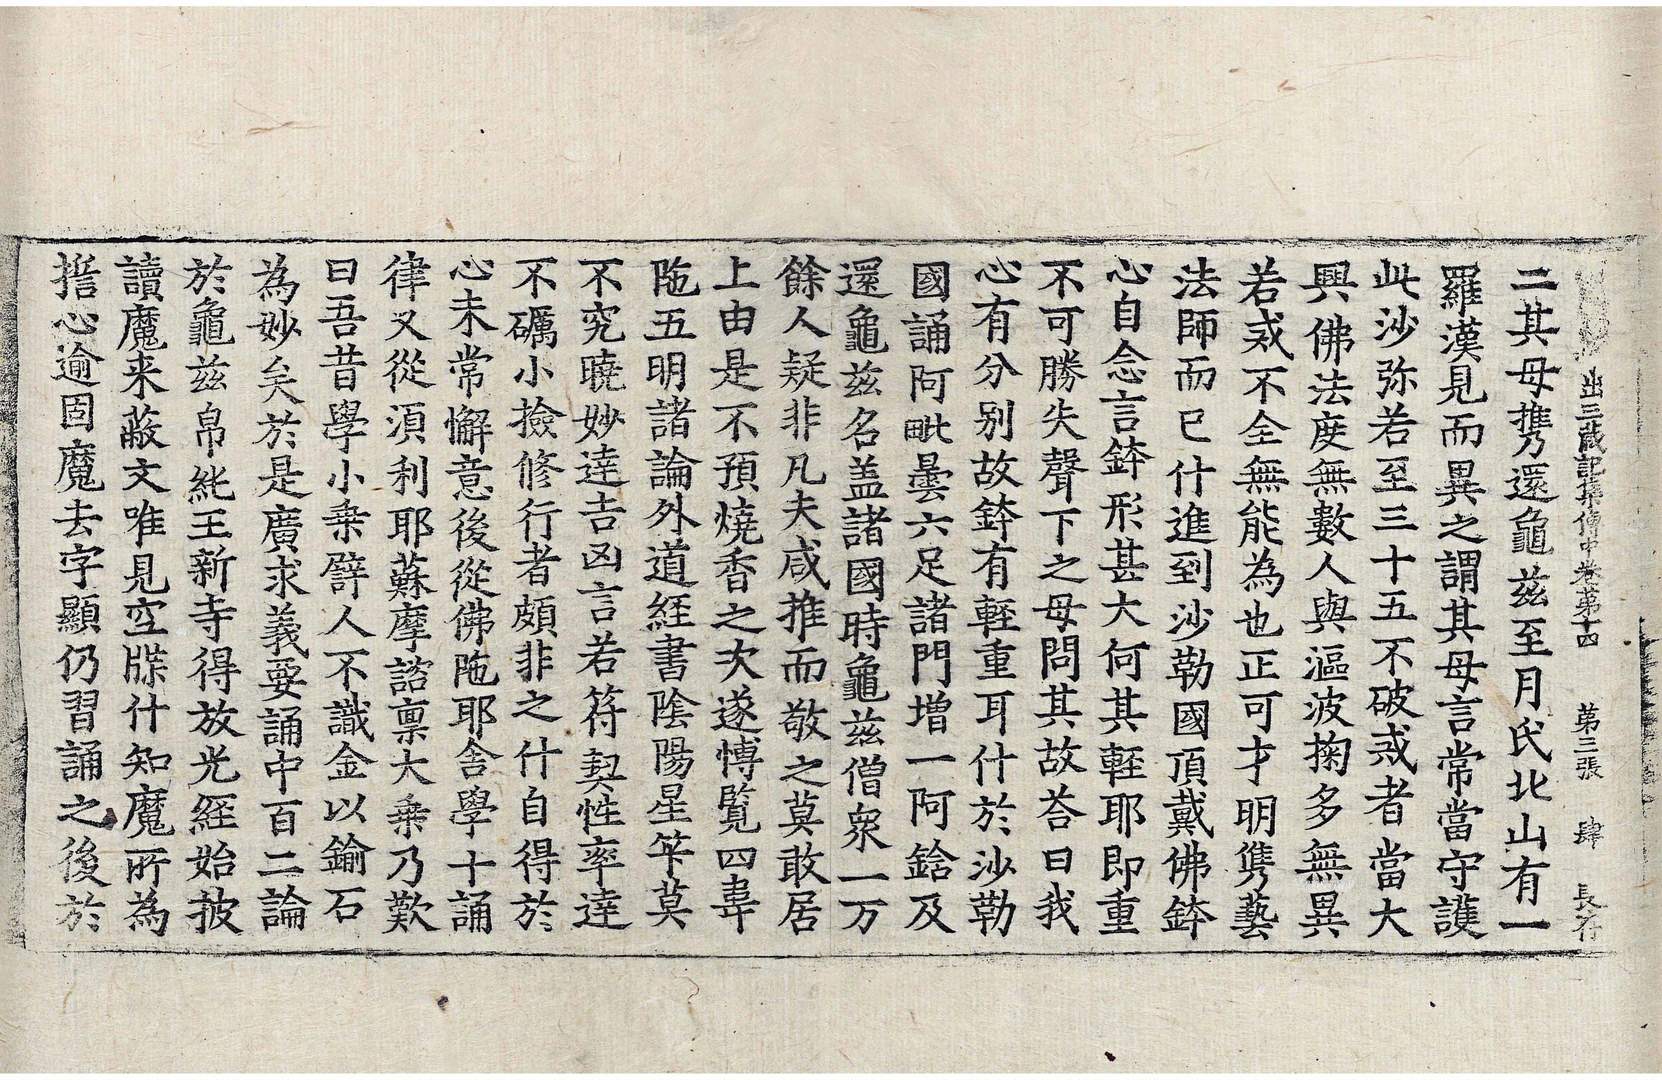 出三藏記集傳中卷第十四 第三張 肆 長行
二其母攜還龜茲至月氏北山有一
羅漢見而異之謂其母言常當守護
此沙弥若至三十五不破戒者當大
興佛法度無數人與漚波掬多無異
若戒不全無能為也正可才明雋藝
法師而已什進到沙勒國頂戴佛鉢
心自念言鉢形甚大何其輕耶即重
不可勝失聲下之母問其故荅曰我
心有分别故鉢有輕重耳什於沙勒
國誦阿毗曇六足諸門增一阿鋡及
還龜茲名盖諸國時龜茲僧衆一万
餘人疑非凡夫咸推而敬之莫敢居
上由是不預燒香之次遂博覧四韋
陁五明諸論外道経書陰陽星筭莫
不究曉妙達吉凶言若符契性率達
不礪小撿修行者頗非之什自得於
心未常懈意後從佛陁耶舍學十誦
律又從湏利耶蘇摩諮禀大乗乃歎
曰吾昔學小乗譬人不識金以鍮石
為妙矣於是廣求義要誦中百二論
於龜茲帛純王新寺得放光経始披
讀魔来蔽文唯見空牒什知魔所為
誓心逾固魔去字顯仍習誦之後於